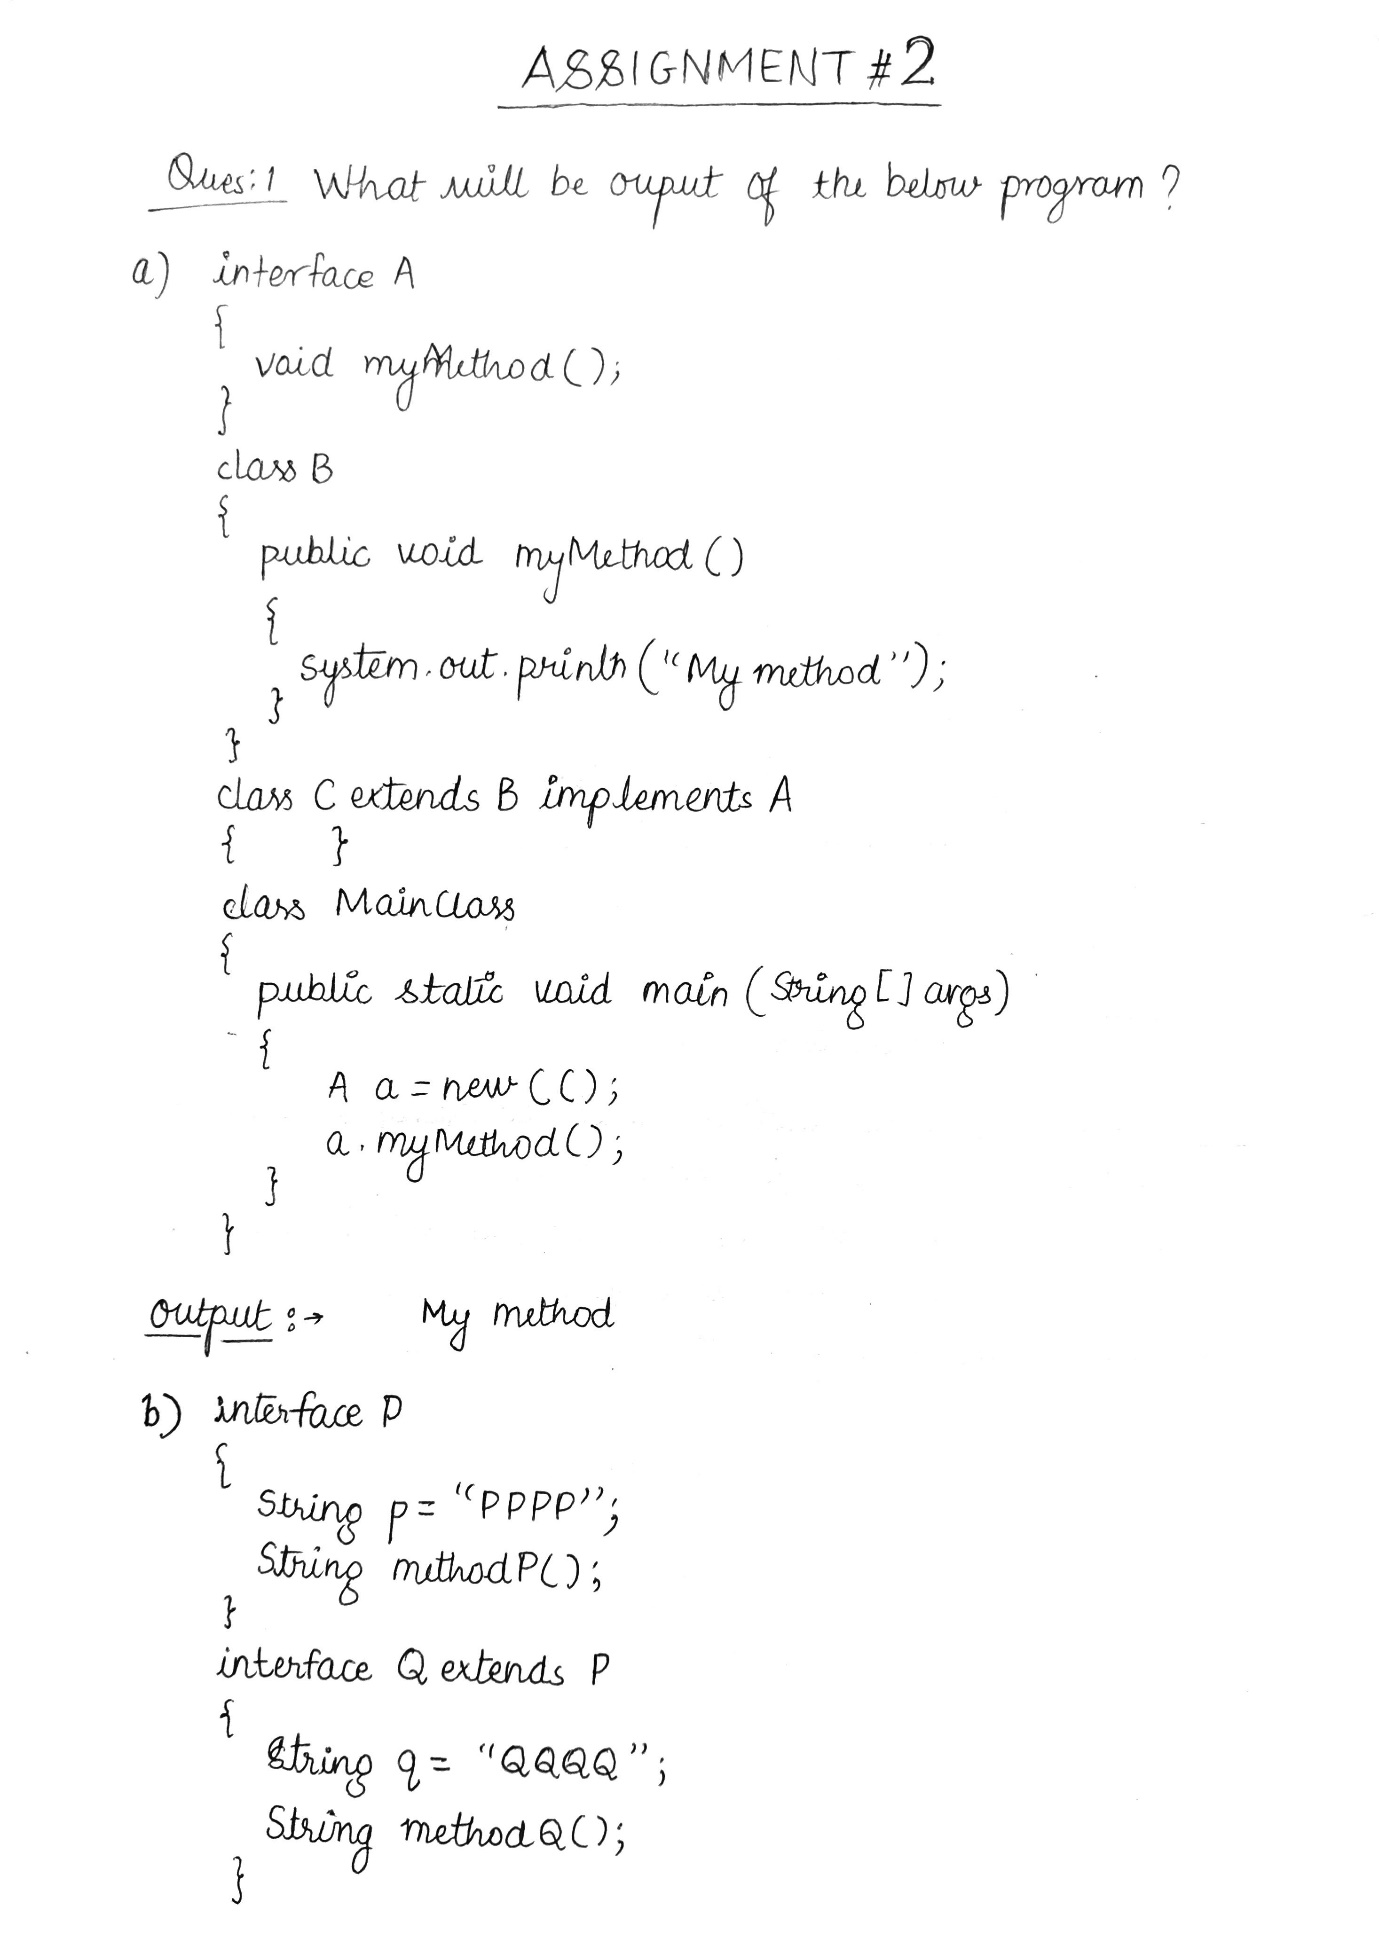 ASSIGNMENT #2
Ques:1 What will be ouput of the below program ?
a) interface A
{
void myMethod();
}
class B
{
public void myMethod()
{
system.out.println("My method");
}
}
class C extends B implements A
{ }
class MainClass
{
public static void main (String[] args)
{
A a = new C();
a.myMethod();
}
}
Output :→ My method
b) interface P
{
String p = "PPPP";
String methodP();
}
interface Q extends P
{
String q = "QQQQ";
String methodQ();
}